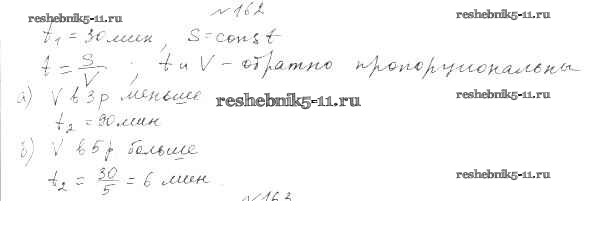 №162
reshebnik5-11.ru reshebnik5-11.ru
t₁ = 30 мин, S = const
t = S/V ; t и V – обратно пропорциональны
а) V в 3 р меньше reshebnik5-11.ru reshebnik5-11.ru
t₂ = 90 мин
б) V в 5 р больше
t₂ = 30/5 = 6 мин. reshebnik5-11.ru
№163